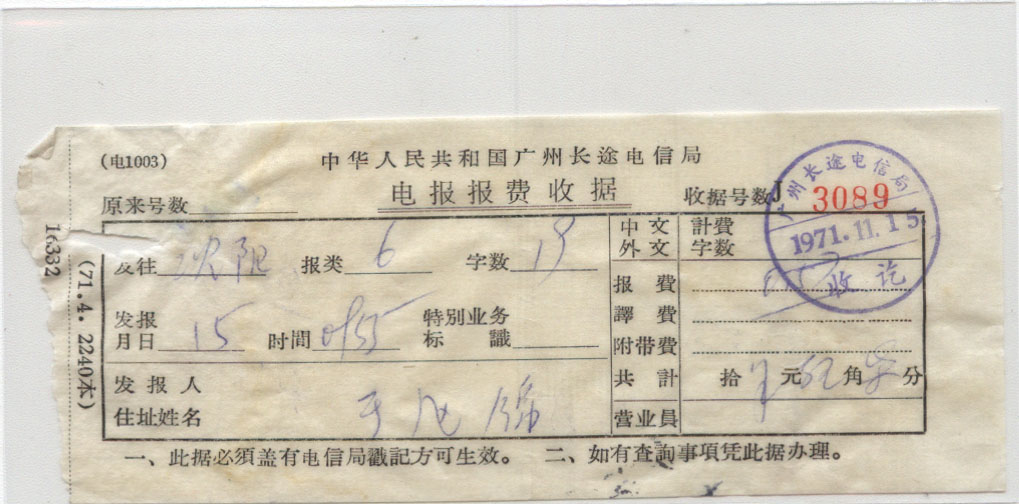 (电1003)
中华人民共和国广州长途电信局
电报报费收据
原来号数
收据号数J 3089
广州长途电信局
1971.11.15
收讫
发往 沈阳 报类 6 字数 19
中文 計費
外文 字数
报費
发报
月日 15 时間 0955 特别业务
标識
譯費
附带費
共計 拾 元 角 分
发报人
住址姓名 于
营业员
一、此据必須盖有电信局戳記方可生效。 二、如有查詢事項凭此据办理。
16332
(71.4. 2240本)